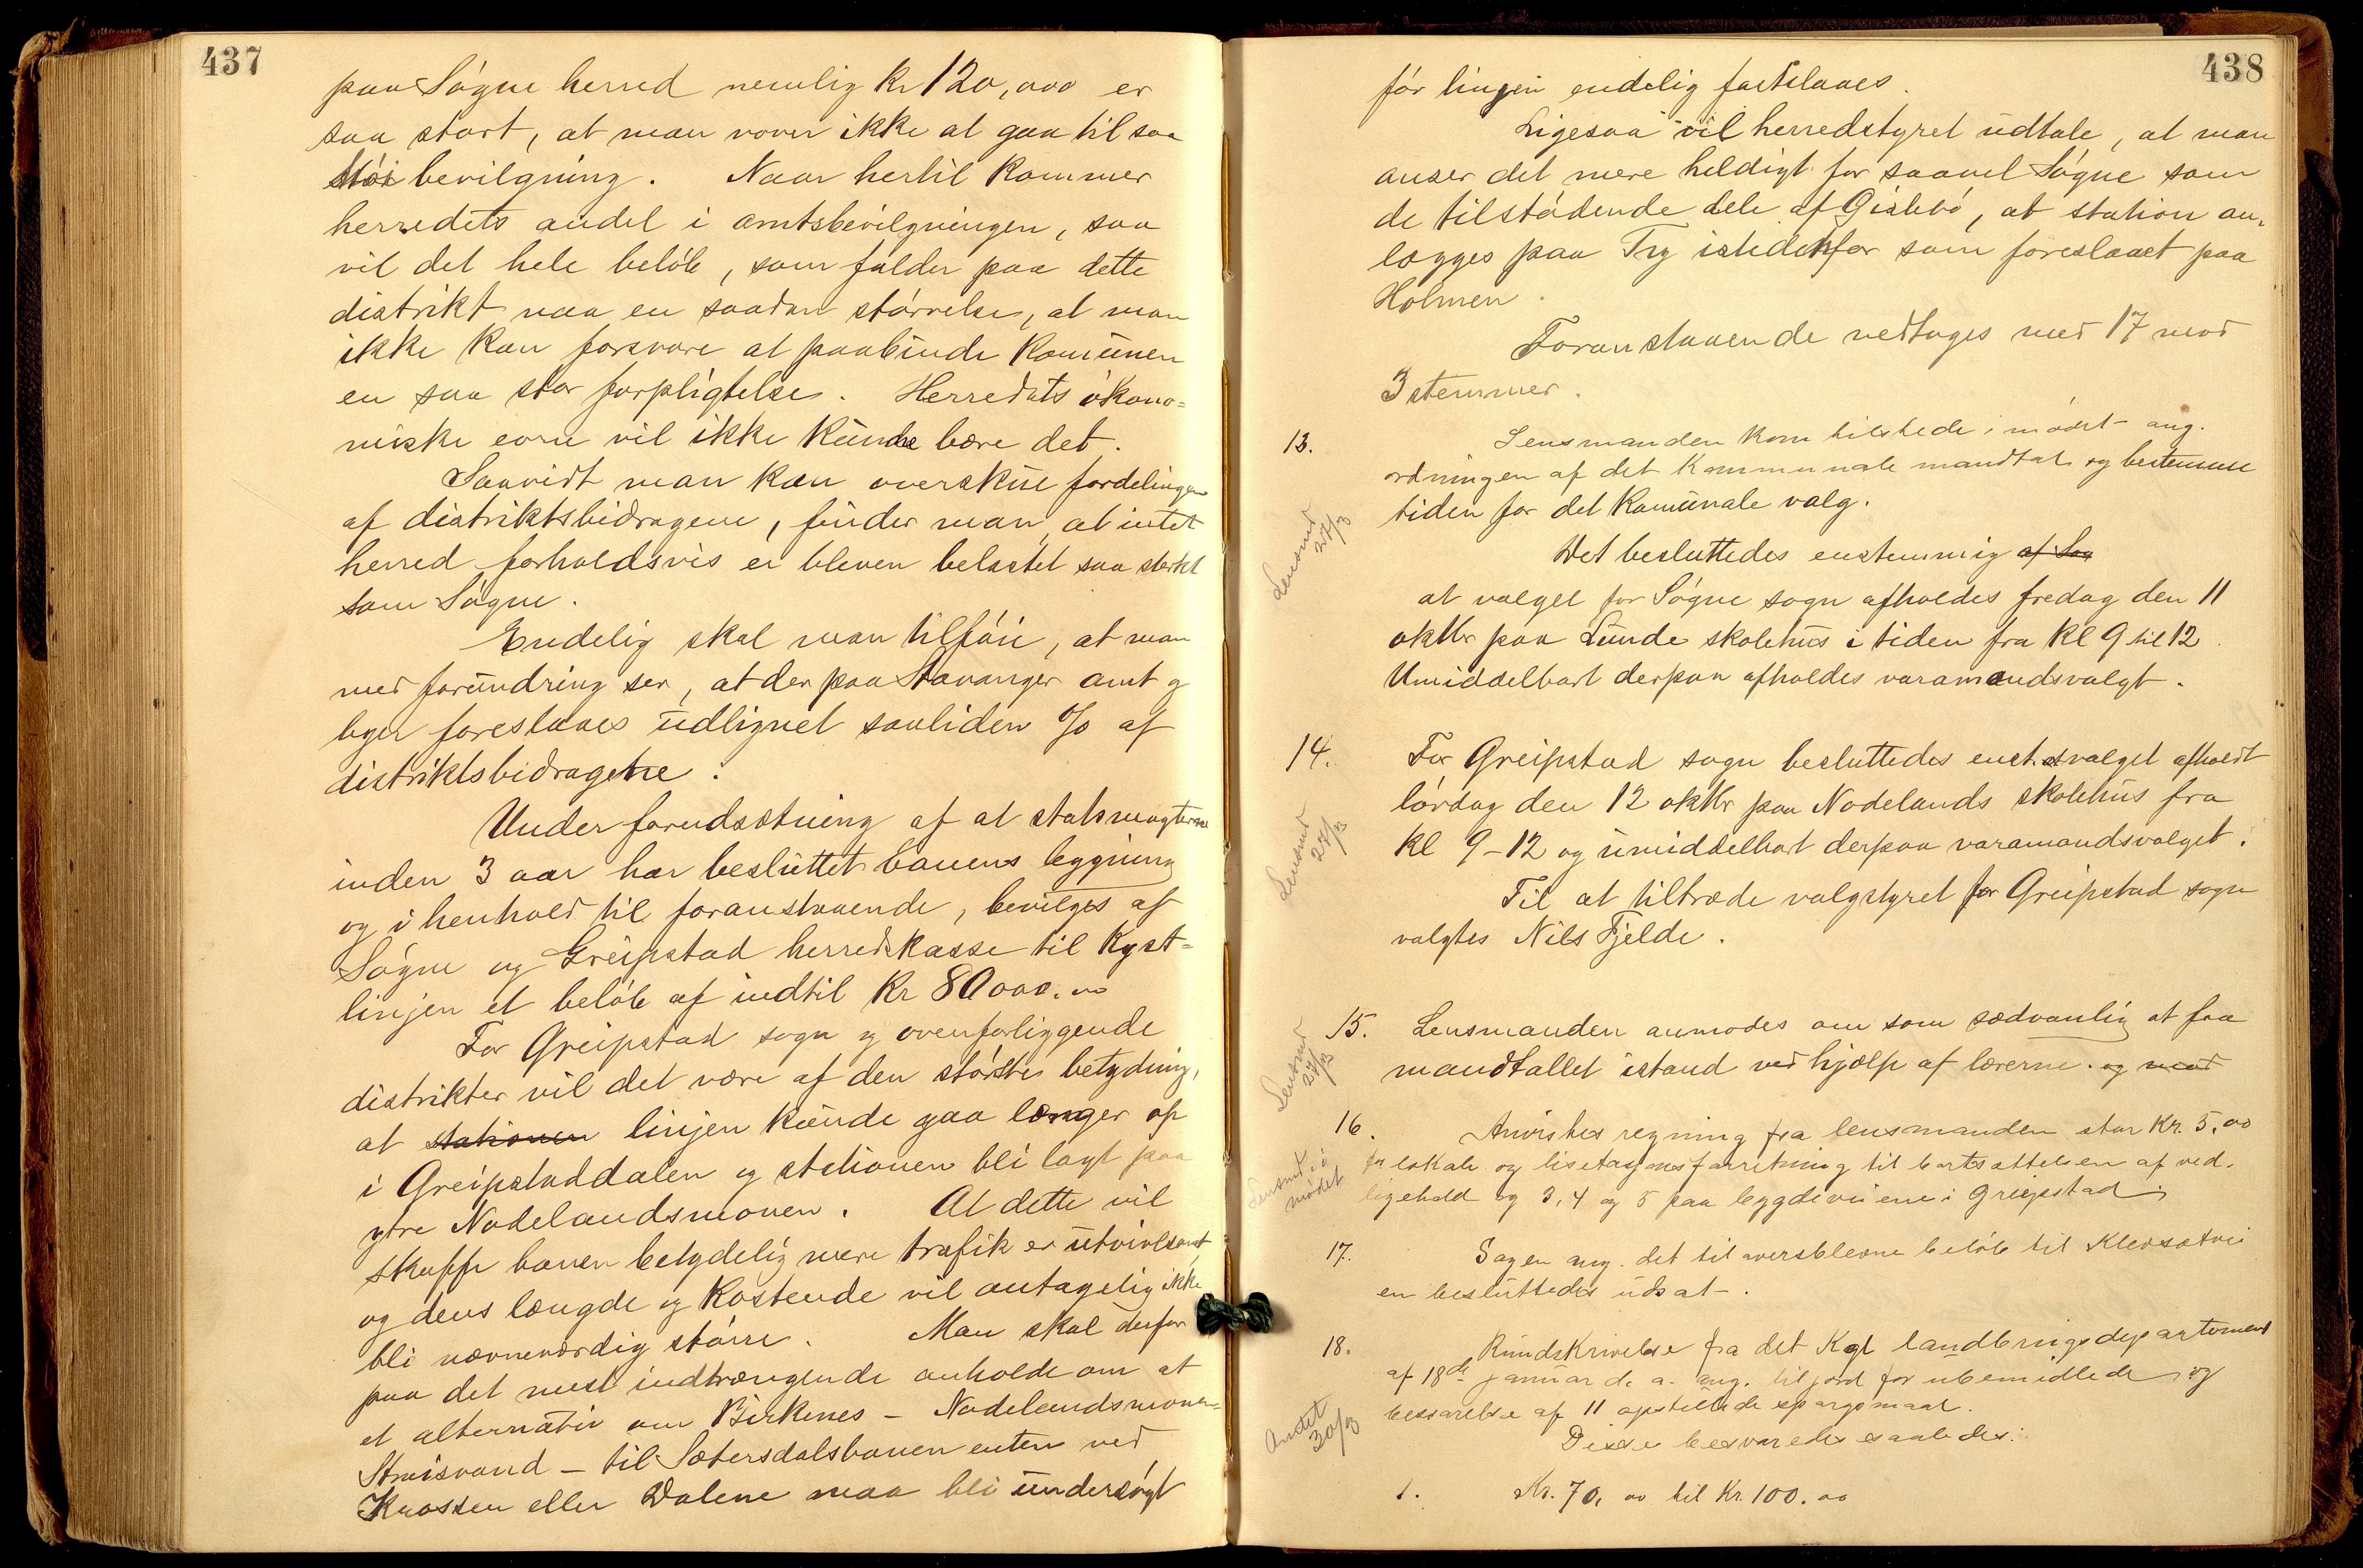 437
paa Søgne herred nemlig Kr 120,000 er
saa stort, at man vover ikke at gaa til saa
høi bevilgning. Naar hertil kommer
herredets andel i amtsbevilgningen, saa
vil det hele beløb, som falder paa dette
distrikt naa en saadan størrelse, at man
ikke kan forsvare at paabinde komunen
en saa stor forpligtelse. Herredets økono=
miske evne vil ikke kunde bære det.
Saavidt man kan overskue fordelingen
af distriktsbidragene, finder man, at intet
herred forholdsvis er bleven belastet saa sterkt
som Søgne.
Endelig skal man tilføie, at man
med forundring ser, at der paa Stavanger amt g
byer foreslaaes udlignet saaliden % af
distriktsbidragene.
Under forudsætning af at statsmagterne
inden 3 aar har besluttet banens lægning
og i henhold til foranstaaende, bevilges af
Søgne og Greipstad herredskasse til Kyst=
linjen et beløb af indtil Kr 80000.00
For Greipstad sogn g ovenforliggende
distrikter vil det være af den største betydning,
at stationen linjen kunde gaa længer op
i Greipstaddalen g stationen bli lagt paa
ytre Nodelandsmonen. At dette vil
skaffe banen betydelig mere trafik er utvivlsomt
og dens længde og kostende vil antagelig ikke
bli nævneværdig større. Man skal derfor
paa det mest indtrængende anholde om at
et alternativ om Birkenes – Nodelandsmonen=
Straisvand – til Sætersdalsbanen enten ved
Krossen eller Dalene maa bli undersøgt
438
før linjen endelig fastslaaes.
Ligesaa vil herredstyret udtale, at man
anser det mere heldigt for saavel Søgne som
de tilstødende dele af Øislebø, at station an=
lægges paa Try istedenfor som foreslaaet paa
Holmen.
Foranstaaende vedtoges med 17 mod
3 stemmer.
13. Lensmanden kom tilstede i mødet ang.
ordningen af det kommunale mandtal og bestemme
tiden for det komunale valg.
Lensmd
27/3
Det besluttedes enstemmig af Søg
at valget for Søgne sogn afholdes fredag den 11
oktbr paa Lunde skolehus i tiden fra Kl 9 til 12.
Umiddelbart derpaa afholdes varamandsvalgt.
14. For Greipstad sogn besluttedes enst. at valget afholdt
lørdag den 12 oktbr paa Nodelands skolehus fra
Kl 9–12 og umiddelbart derpaa varamandsvalget.
Lensmd
27/3
Til at tiltræde valgstyret for Greipstad sogn
valgtes Nils Fjelde.
15. Lensmanden anmodes om som sædvanlig at faa
mandtallet istand ved hjælp af lærerne. og med
Lensmd
27/3
16. Anvistes regning fra lensmanden stor Kr. 5.00
for lokale og lisetasjonsforretning til bortsættelsen af ved.
ligehold og 3, 4 og 5 paa bygdeveiene i Greipstad.
Lensmd i
mødet
17. Sagen ang. det tiloversblevne beløb til Klevsætvei
en besluttedes udsat.
18. Rundskrivelse fra det Kgl landbrugsdepartement
af 18de januar d. a. ang. til jord for ubemidlede og
besvarelse af 11 opstillede spørgsmaal.
Andet
30/3
Disse besvaredes saaledes:
1. Kr. 70,00 til Kr. 100.00